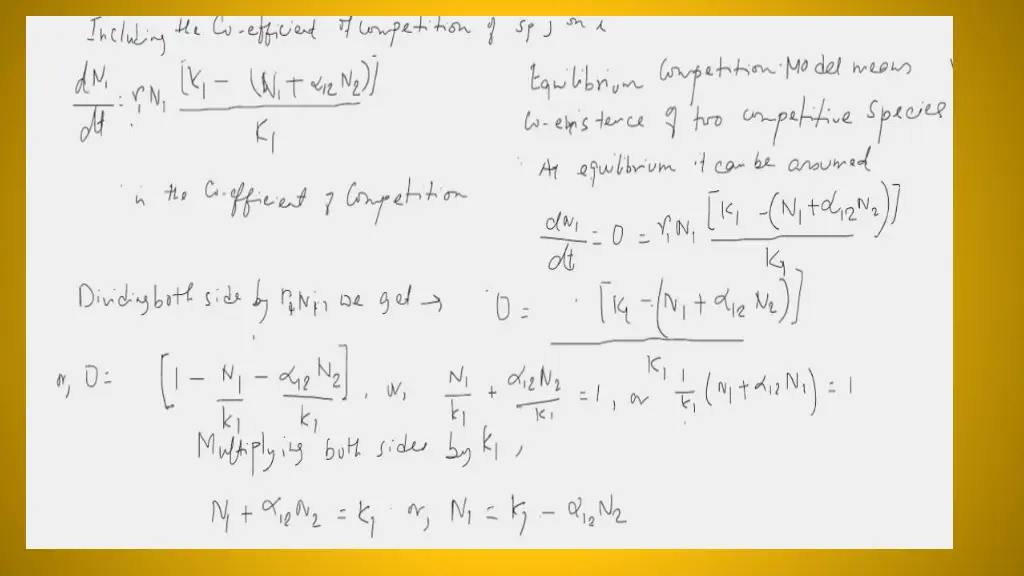 Including the Co-efficient of Competition of sp j on i
dN₁/dt = r₁N₁ [K₁ - (N₁ + α₁₂N₂)]/K₁
is the Co-efficient of Competition
Equilibrium Competition Model means
Co-existence of two competitive species
At equilibrium it can be assumed
dN₁/dt = 0 = r₁N₁ [K₁ - (N₁ + α₁₂N₂)]/K₁
Dividing both side by r₁N₁, we get → 0 = [K₁ - (N₁ + α₁₂N₂)]/K₁
or, 0 = [1 - N₁/K₁ - α₁₂N₂/K₁], or, N₁/K₁ + α₁₂N₂/K₁ = 1, or 1/K₁ (N₁ + α₁₂N₁) = 1
Multiplying both sides by K₁,
N₁ + α₁₂N₂ = K₁ or, N₁ = K₁ - α₁₂N₂